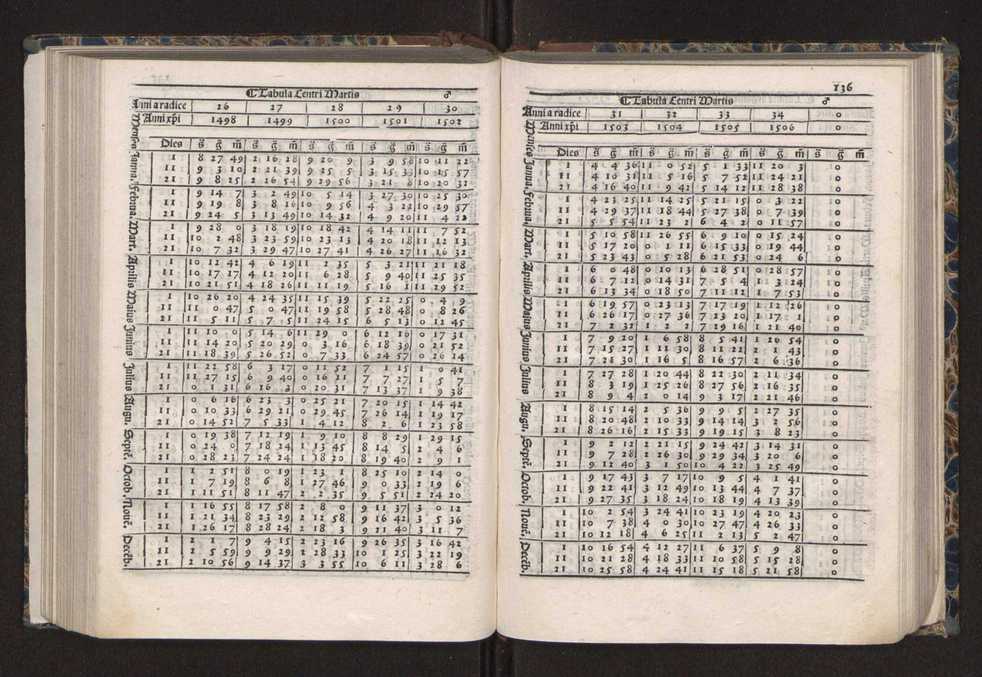 ¶ Tabula Centri Martis ♂
Anni a radice 26 27 28 29 30
Anni xp̄i 1498 1499 1500 1501 1502
Dies s̄ ḡ m̄ s̄ ḡ m̄ s̄ ḡ m̄ s̄ ḡ m̄ s̄ ḡ m̄
Janua.
1 8 27 49 2 16 28 9 20 9 3 9 58 10 11 22
11 9 3 10 2 21 39 9 25 5 3 15 33 10 15 57
21 9 8 25 2 16 54 9 29 56 3 21 8 10 20 32
Februa.
1 9 14 7 3 2 49 10 5 14 3 27 30 10 25 30
11 9 19 8 3 8 16 10 9 56 4 3 22 10 29 57
21 9 24 5 3 13 49 10 14 32 4 9 20 11 4 22
Mart.
1 9 28 0 3 18 19 10 18 42 4 14 11 11 7 52
11 10 2 48 3 23 59 10 23 13 4 20 18 11 12 13
21 10 7 32 3 29 47 10 27 41 4 26 27 11 16 32
Aprilis
1 10 12 42 4 6 19 11 2 35 5 3 21 11 21 18
11 10 17 17 4 12 20 11 6 28 5 9 40 11 25 35
21 10 21 51 4 18 26 11 11 19 5 16 1 11 29 52
Maius
1 10 26 20 4 24 35 11 15 39 5 22 25 0 4 9
11 11 0 47 5 0 47 11 19 58 5 28 48 0 8 26
21 11 5 11 5 7 5 11 24 15 6 5 13 0 12 45
Junius
1 11 10 0 5 14 6 11 29 0 6 12 16 0 17 31
11 11 14 20 5 20 29 0 3 16 6 18 39 0 21 52
21 11 18 39 5 26 52 0 7 33 6 24 57 0 26 14
Julius
1 11 22 58 6 3 17 0 11 52 7 1 15 1 0 41
11 11 27 15 6 9 40 0 16 11 7 7 27 1 5 7
21 0 1 31 6 16 3 0 20 31 7 13 37 1 9 38
Augu.
1 0 6 16 6 23 3 0 25 21 7 20 15 1 14 42
11 0 10 33 6 29 21 0 29 45 7 26 14 1 19 17
21 0 14 52 7 5 33 1 4 12 8 2 6 1 23 58
Septē.
1 0 19 38 7 12 19 1 9 10 8 8 29 1 29 15
11 0 24 0 7 18 24 1 13 45 8 14 5 2 4 6
21 0 28 23 7 24 24 1 18 20 8 19 40 2 9 1
Octob.
1 1 2 51 8 0 19 1 23 1 8 25 10 2 14 0
11 1 7 19 8 6 8 1 27 46 9 0 33 2 19 6
21 1 11 51 8 11 47 2 2 35 9 5 51 2 24 20
Nouē.
1 1 16 55 8 17 58 2 8 0 9 11 37 3 0 12
11 1 21 34 8 23 29 2 12 58 9 16 42 3 5 36
21 1 26 17 8 28 24 2 18 3 9 11 40 3 11 7
Decēb.
1 2 1 7 9 4 15 2 23 16 9 26 35 3 16 42
11 2 5 59 9 9 29 2 28 33 10 1 25 3 22 19
21 2 10 56 9 14 37 3 3 55 10 6 11 3 28 6
136
¶ Tabula Centri Martis ♂
Anni a radice 31 32 33 34 0
Anni xp̄i 1503 1504 1505 1506 0
Dies s̄ ḡ m̄ s̄ ḡ m̄ s̄ ḡ m̄ s̄ ḡ m̄ s̄ ḡ m̄
Janua.
1 4 4 36 11 0 52 5 1 33 11 20 3 0
11 4 10 31 11 5 16 5 7 52 11 24 21 0
21 4 16 40 11 9 42 5 14 12 11 28 38 0
Februa.
1 4 23 25 11 14 25 5 21 15 0 3 22 0
11 4 29 37 11 18 44 5 27 38 0 7 39 0
21 5 5 54 11 23 2 6 4 2 0 11 57 0
Mart.
1 5 10 58 11 26 55 6 9 10 0 15 24 0
11 5 17 20 0 1 11 6 15 33 0 19 44 0
21 5 23 43 0 5 28 6 21 53 0 24 6 0
Aprilis
1 6 0 48 0 10 13 6 28 51 0 28 57 0
11 6 7 12 0 14 31 7 5 4 1 3 24 0
21 6 13 34 0 18 50 7 11 12 1 7 53 0
Maius
1 6 19 57 0 23 13 7 17 19 1 12 26 0
11 6 26 17 0 27 36 7 23 20 1 17 1 0
21 7 2 32 1 2 2 7 19 16 1 21 40 0
Junius
1 7 9 20 1 6 58 8 5 41 1 26 54 0
11 7 15 27 1 11 30 8 11 22 2 1 43 0
21 7 21 30 1 16 5 8 16 57 2 6 36 0
Julius
1 7 27 28 1 20 44 8 22 30 2 11 34 0
11 8 3 19 1 25 26 8 27 56 2 16 35 0
21 8 9 4 2 0 14 9 3 17 2 21 46 0
Augu.
1 8 15 14 2 5 36 9 9 5 2 27 35 0
11 8 20 48 2 10 33 9 14 14 3 2 56 0
21 8 26 16 2 15 33 9 19 15 3 8 23 0
Septē.
1 9 2 12 2 21 15 9 24 42 3 14 31 0
11 9 7 28 2 26 30 9 29 34 3 20 6 0
21 9 12 40 3 1 50 10 4 22 3 25 49 0
Octob.
1 9 17 43 3 7 17 10 9 5 4 1 41 0
11 9 22 41 3 12 49 10 13 44 4 7 37 0
21 9 27 35 3 18 24 10 18 19 4 13 39 0
Nouē.
1 10 2 54 3 24 41 10 23 19 4 20 23 0
11 10 7 38 4 0 30 10 27 47 4 26 33 0
21 10 12 18 4 6 25 11 2 13 5 2 47 0
Decēb.
1 10 16 54 4 12 27 11 6 37 5 9 8 0
11 10 21 28 4 18 33 11 10 58 5 15 18 0
21 10 25 58 4 24 41 11 15 18 5 21 58 0